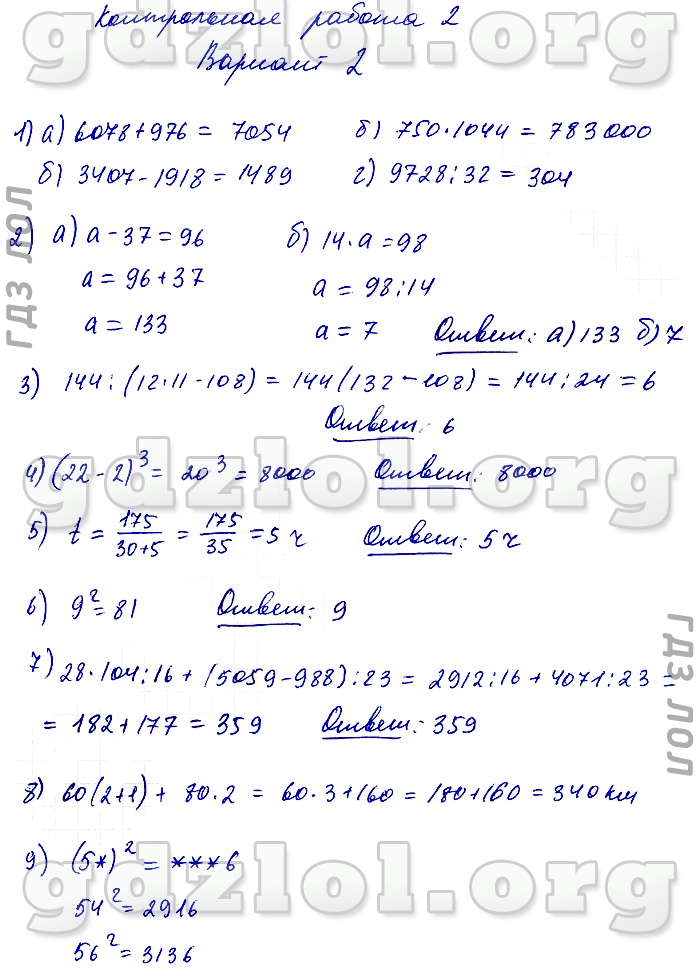 Контрольная работа 2
Вариант 2
1) а) 6078+976 = 7054 б) 750·1044 = 783000
б) 3407-1918 = 1489 г) 9728:32 = 304
2) а) a-37=96 б) 14·a=98
a = 96+37 a = 98:14
a = 133 a = 7 Ответ: а) 133 б) 7
3) 144:(12·11-108) = 144(132-108) = 144:24 = 6
Ответ: 6
4) (22-2)³ = 20³ = 8000 Ответ: 8000
5) t = 175/30+5 = 175/35 = 5 ч Ответ: 5 ч
6) 9² = 81 Ответ: 9
7) 28·104:16 + (5059-988):23 = 2912:16 + 4071:23 =
= 182+177 = 359 Ответ: 359
8) 60(2+1) + 80·2 = 60·3+160 = 180+160 = 340 км
9) (5*)² = ***6
54² = 2916
56² = 3136
gdzlol.org
gdzlol.org
gdzlol.org
ГДЗ ЛОЛ
ГДЗ ЛОЛ